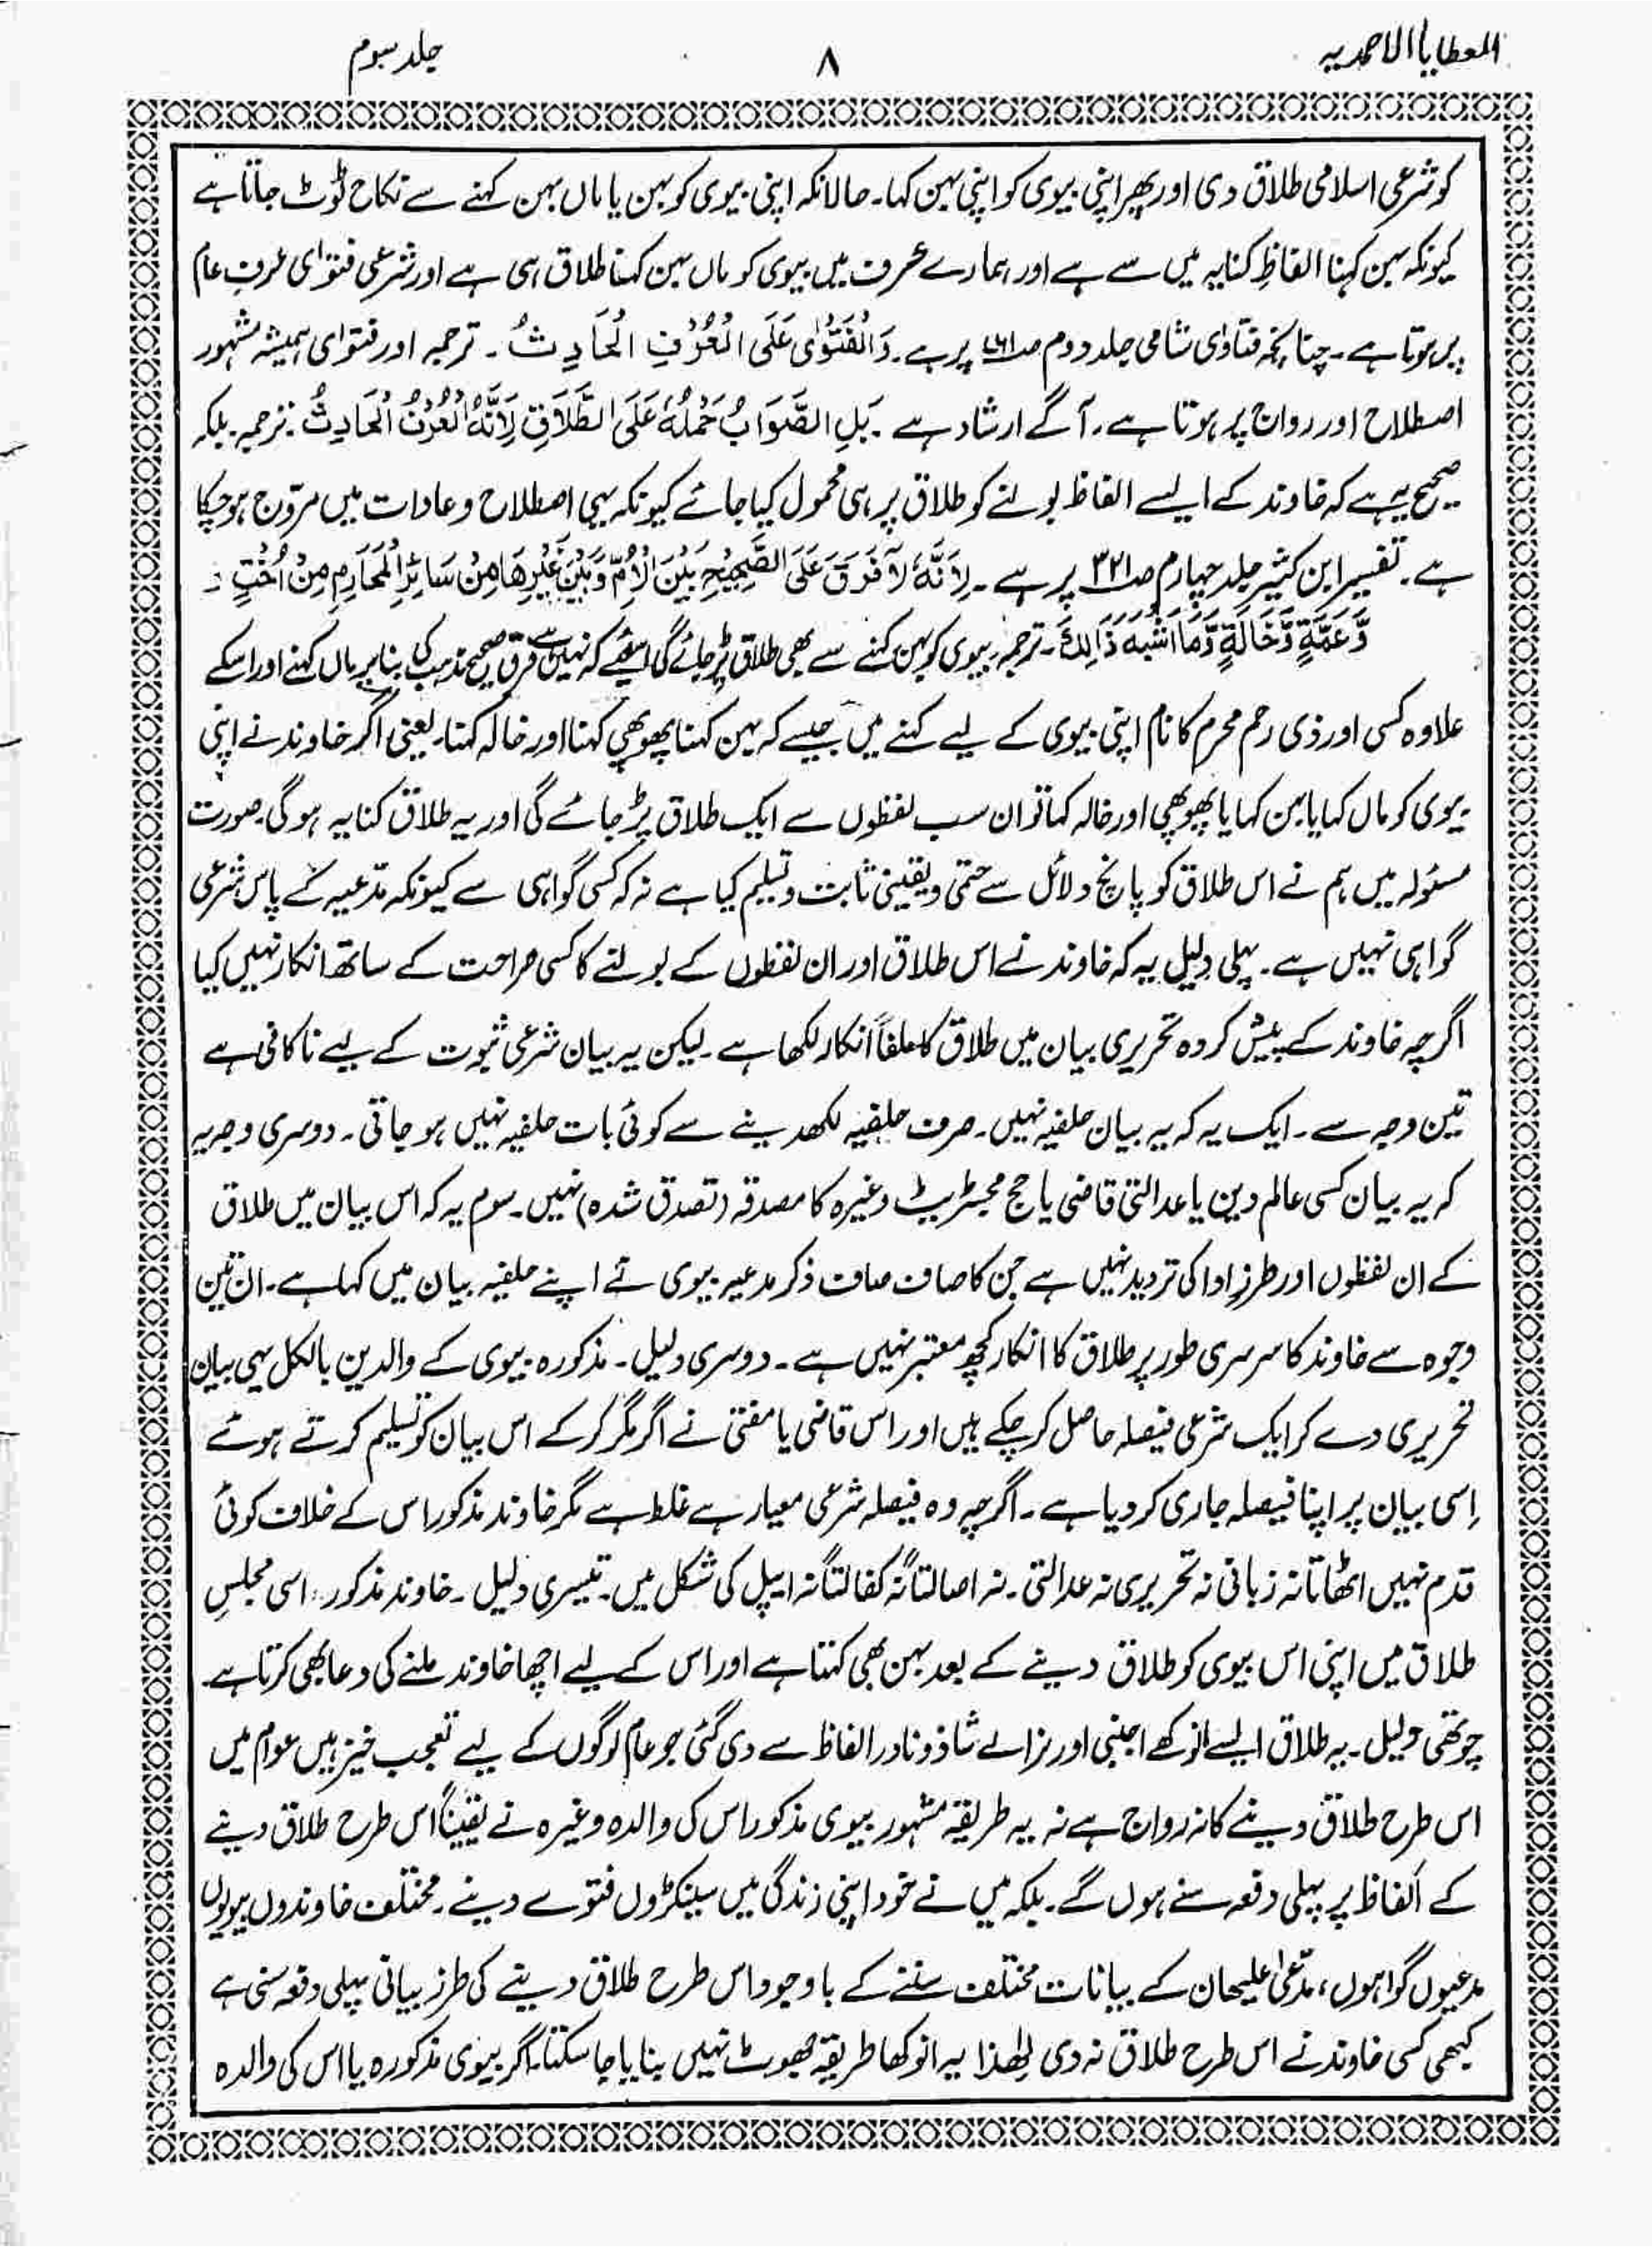 العطایا الاحمدیہ
۸
جلد سوم
کو شرعی اسلامی طلاق دی اور پھر اپنی بیوی کو اپنی بہن کہا۔ حالانکہ اپنی بیوی کو بہن یا ماں بہن کہنے سے نکاح ٹوٹ جاتا ہے
کیونکہ بہن کہنا الفاظِ کنایہ میں سے ہے اور ہمارے عرف میں بیوی کو ماں بہن کہنا طلاق ہی ہے اور شرعی فتوٰی عرفِ عام
پر ہوتا ہے۔ چنانچہ فتاوٰی شامی جلد دوم پر ہے۔ وَالْفَتْوٰی عَلَی الْعُرْفِ الْحَادِثُ۔ ترجمہ اور فتوٰی ہمیشہ مشہور
اصطلاح اور رواج پر ہوتا ہے۔ آگے ارشاد ہے۔ بَلِ الصَّوَابُ حَمْلُہٗ عَلَی الطَّلَاقِ لِاَنَّہُ الْعُرْفُ الْحَادِثُ۔ ترجمہ۔ بلکہ
صحیح یہ ہے کہ خاوند کے ایسے الفاظ بولنے کو طلاق پر ہی محمول کیا جائے کیونکہ یہی اصطلاح و عادات میں مروّج ہو چکا
ہے۔ تفسیر ابن کثیر جلد چہارم صـ ۳۲۱ پر ہے۔ لِاَنَّہٗ لَا فَرَقَ عَلَی الصَّحِیْحِ بَیْنَ الْاُمِّ وَبَیْنَ غَیْرِھَا مِنْ سَائِرِ الْمَحَارِمِ مِنْ اُخْتٍ
وَّعَمَّۃٍ وَّخَالَۃٍ وَّمَا اَشْبَہَ ذَالِکَ۔ ترجمہ۔ بیوی کو بہن کہنے سے بھی طلاق پڑ جائے گی اسلئے کہ نہیں ہے فرق صحیح مذہب کی بنا پر ماں کہنے اور اسکے
علاوہ کسی اور ذی رحم محرم کا نام اپنی بیوی کے لیے کہنے میں جیسے کہ بہن کہنا پھوپھی کہنا اور خالہ کہنا۔ یعنی اگر خاوند نے اپنی
بیوی کو ماں کہا یا بہن کہا یا پھوپھی اور خالہ کہا تو ان سب لفظوں سے ایک طلاق پڑ جائے گی اور یہ طلاق کنایہ ہو گی۔ صورت
مسئولہ میں ہم نے اس طلاق کو پانچ دلائل سے حتمی و یقینی ثابت و تسلیم کیا ہے نہ کہ کسی گواہی سے کیونکہ مدّعیہ کے پاس شرعی
گواہی نہیں ہے۔ پہلی دلیل یہ کہ خاوند نے اس طلاق اور ان لفظوں کے بولنے کا کسی صراحت کے ساتھ انکار نہیں کیا
اگرچہ خاوند کے پیش کردہ تحریری بیان میں طلاق کا حلفاً انکار لکھا ہے۔ لیکن یہ بیان شرعی ثبوت کے لیے ناکافی ہے
تین وجہ سے۔ ایک یہ کہ یہ بیان حلفیہ نہیں۔ صرف حلفیہ لکھدینے سے کوئی بات حلفیہ نہیں ہو جاتی۔ دوسری وجہ یہ
کہ یہ بیان کسی عالم دین یا عدالتی قاضی یا جج مجسٹریٹ وغیرہ کا مصدقہ (تصدق شدہ) نہیں۔ سوم یہ کہ اس بیان میں طلاق
کے ان لفظوں اور طرزِ ادا کی تردید نہیں ہے جن کا صاف صاف ذکر مدعیہ بیوی نے اپنے حلفیہ بیان میں کہا ہے۔ ان تین
وجوہ سے خاوند کا سرسری طور پر طلاق کا انکار کچھ معتبر نہیں ہے۔ دوسری دلیل۔ مذکورہ بیوی کے والدین بالکل یہی بیان
تحریری دے کر ایک شرعی فیصلہ حاصل کر چکے ہیں اور اس قاضی یا مفتی نے اگر مگر کر کے اس بیان کو تسلیم کرتے ہوئے
اِسی بیان پر اپنا فیصلہ جاری کر دیا ہے۔ اگرچہ وہ فیصلہ شرعی معیار سے غلط ہے مگر خاوند مذکور اس کے خلاف کوئی
قدم نہیں اٹھاتا نہ زبانی نہ تحریری نہ عدالتی۔ نہ اصالتاً نہ کفالتاً نہ اپیل کی شکل میں۔ تیسری دلیل۔ خاوند مذکور اسی مجلسِ
طلاق میں اپنی اس بیوی کو طلاق دینے کے بعد بہن بھی کہتا ہے اور اس کے لیے اچھا خاوند ملنے کی دعا بھی کرتا ہے
چوتھی دلیل۔ یہ طلاق ایسے انوکھے اجنبی اور نرالے شاذ و نادر الفاظ سے دی گئی جو عام لوگوں کے لیے تعجب خیز ہیں عوام میں
اس طرح طلاق دینے کا نہ رواج ہے نہ یہ طریقہ مشہور بیوی مذکور اس کی والدہ وغیرہ نے یقیناً اس طرح طلاق دینے
کے الفاظ پر پہلی دفعہ سنے ہوں گے۔ بلکہ میں نے خود اپنی زندگی میں سینکڑوں فتوے دینے۔ مختلف خاوندوں بیویوں
مدعیوں گواہوں، مدّعیٰ علیھان کے بیانات مختلف سننے کے باوجود اس طرح طلاق دینے کی طرز بیانی پہلی دفعہ سنی ہے
کبھی کسی خاوند نے اس طرح طلاق نہ دی لِھٰذا یہ انوکھا طریقہ جھوٹ نہیں بنایا جا سکتا۔ اگر بیوی مذکورہ یا اس کی والدہ